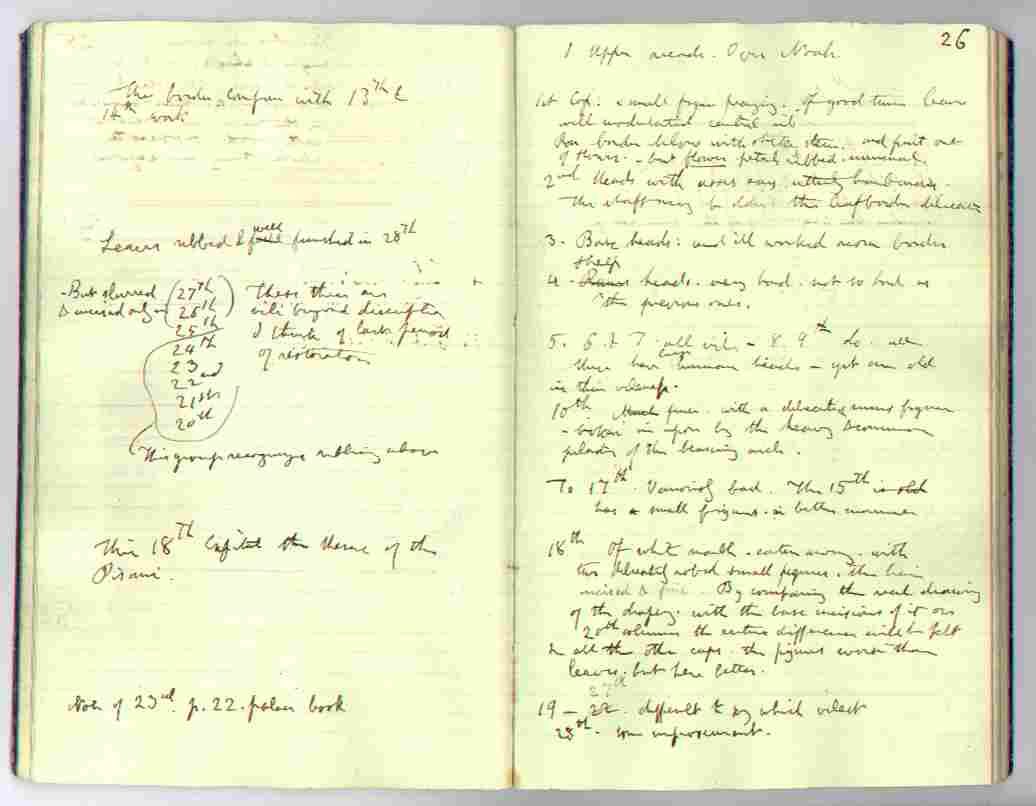 This border, compare with 13th C
14th work
Leaves rubbed & well finished in 28th
- But slurred
& incised only -
27th
26th
25th
24th
23
22nd
21st
20th
These three are
vile beyond description
I think of last period
of restoration
This group recognize rubbing above
This 18th Capital the theme of the
Pisani.
Note of 23rd. p. 22. palace book
26
1 Upper arcade. Over Noah
1st Cap. small figure praying. of good time leaves
well modulated central rib
border below with stem, and fruit out
of flowers. - but flower petals rubbed. unusual.
2nd Heads with asses ears, utterly barbarous.
The shaft may be older the leafborder delicate
3. Base heads: and ill worked border
sheep
4. Rams heads. very bad. not so bad as
the previous ones.
5. 6 & 7. all vile - 8. 9th do. all
these have large human heads - yet are old
in their vileness.
10th Much finer. with a delicate figure
- broken in upon by the heavy & common
pilaster of the bearing arch.
To 17th. Variously bad. The 15th is old
has a small figures. in better manner
18th Of white marble. eaten away. with
the delicately robed small figures. the hair
incised & fine. By comparing the real drawing
of the drapery. with the base incisions of it on
20th columns the entire difference will be felt
In all the other caps. the figures worse than
leaves. but here better.
27th
19 - 22. difficult to say which vilest
28th. some improvement.